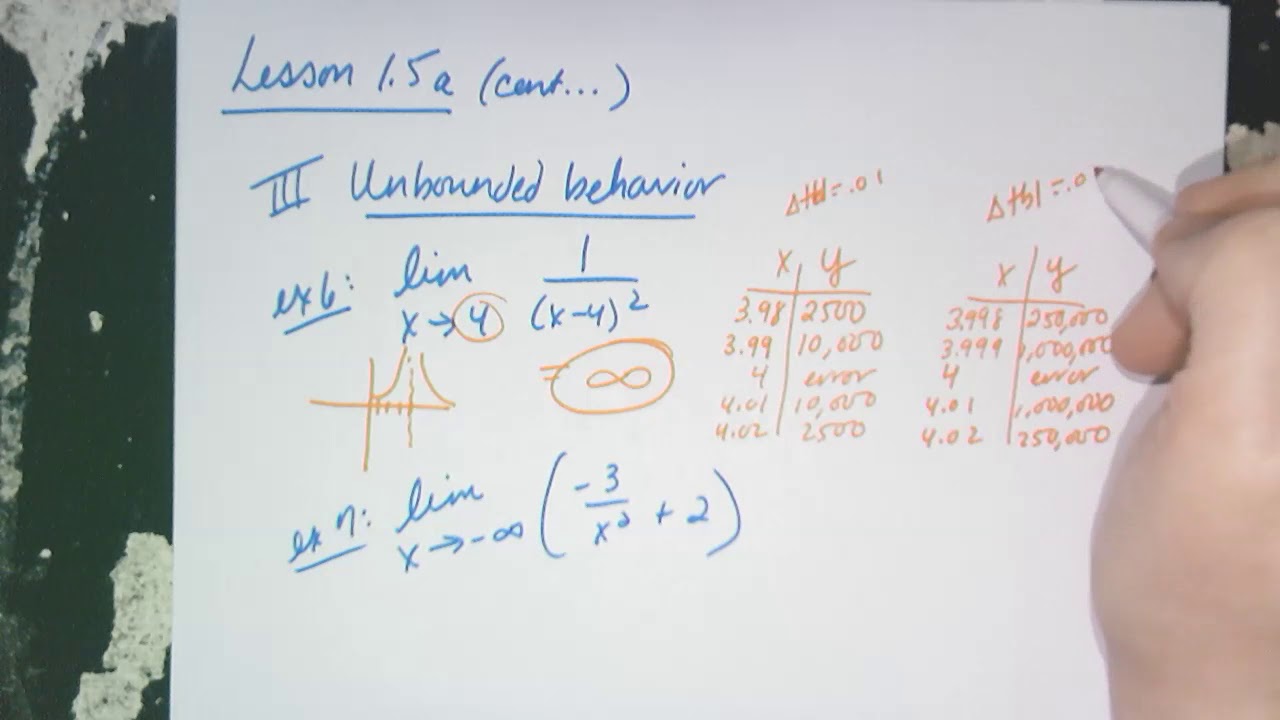 Lesson 1.5a (cont...)
III Unbounded behavior
ex6: lim x→4 1/(x-4)²
= ∞
Δtbl = .01
x y
3.98 2500
3.99 10,000
4 error
4.01 10,000
4.02 2500
Δtbl = .0
x y
3.998 250,000
3.999 1,000,000
4 error
4.01 1,000,000
4.02 250,000
ex7: lim x→-∞ (-3/x² + 2)